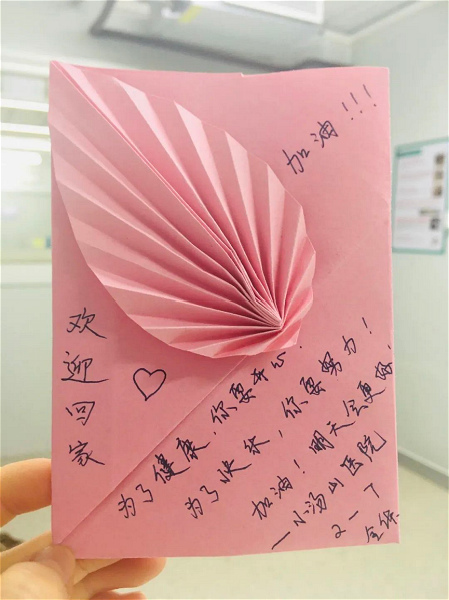 加油!!!
欢迎回家
为了健康,你要开心!
为了快乐,你要努力!
加油!明天会更好.
—小汤山医院
2-7
全体